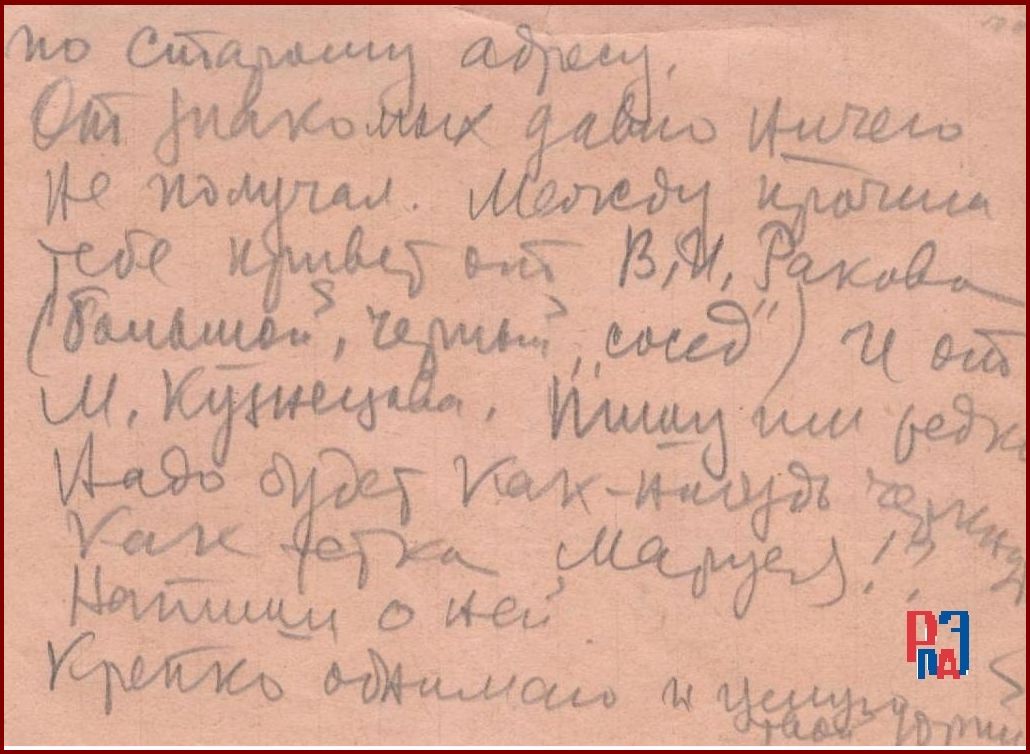 по старому адресу.
От знакомых давно ничего
не получал. Между прочим
тебе привет от В.И. Ракова
(большой, черный, „сосед") и от
М. Кузнецова. Пишу им редко
Надо будет как-нибудь черкнуть
Как тетка Маруся!?
Напиши о ней.
Крепко обнимаю и целую
твой
РЭ
ПД